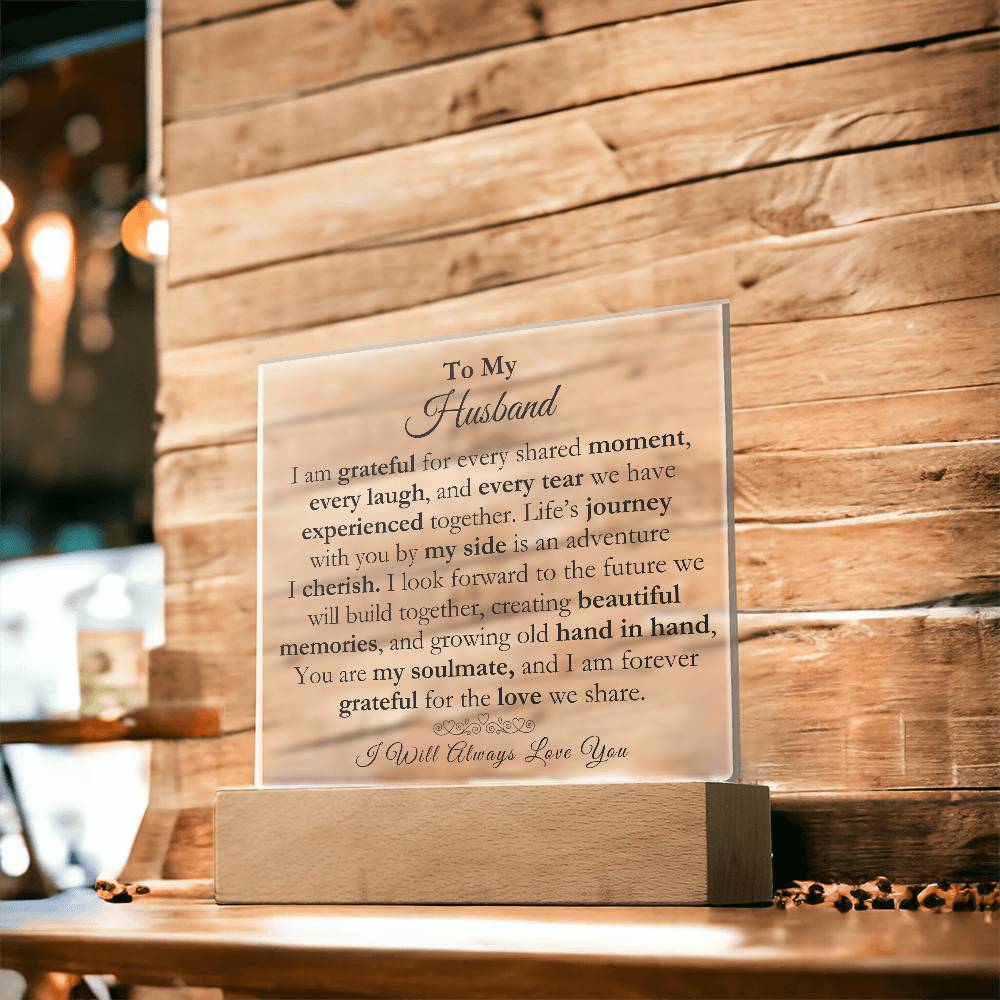 To My
Husband
I am grateful for every shared moment,
every laugh, and every tear we have
experienced together. Life's journey
with you by my side is an adventure
I cherish. I look forward to the future we
will build together, creating beautiful
memories, and growing old hand in hand,
You are my soulmate, and I am forever
grateful for the love we share.
I Will Always Love You